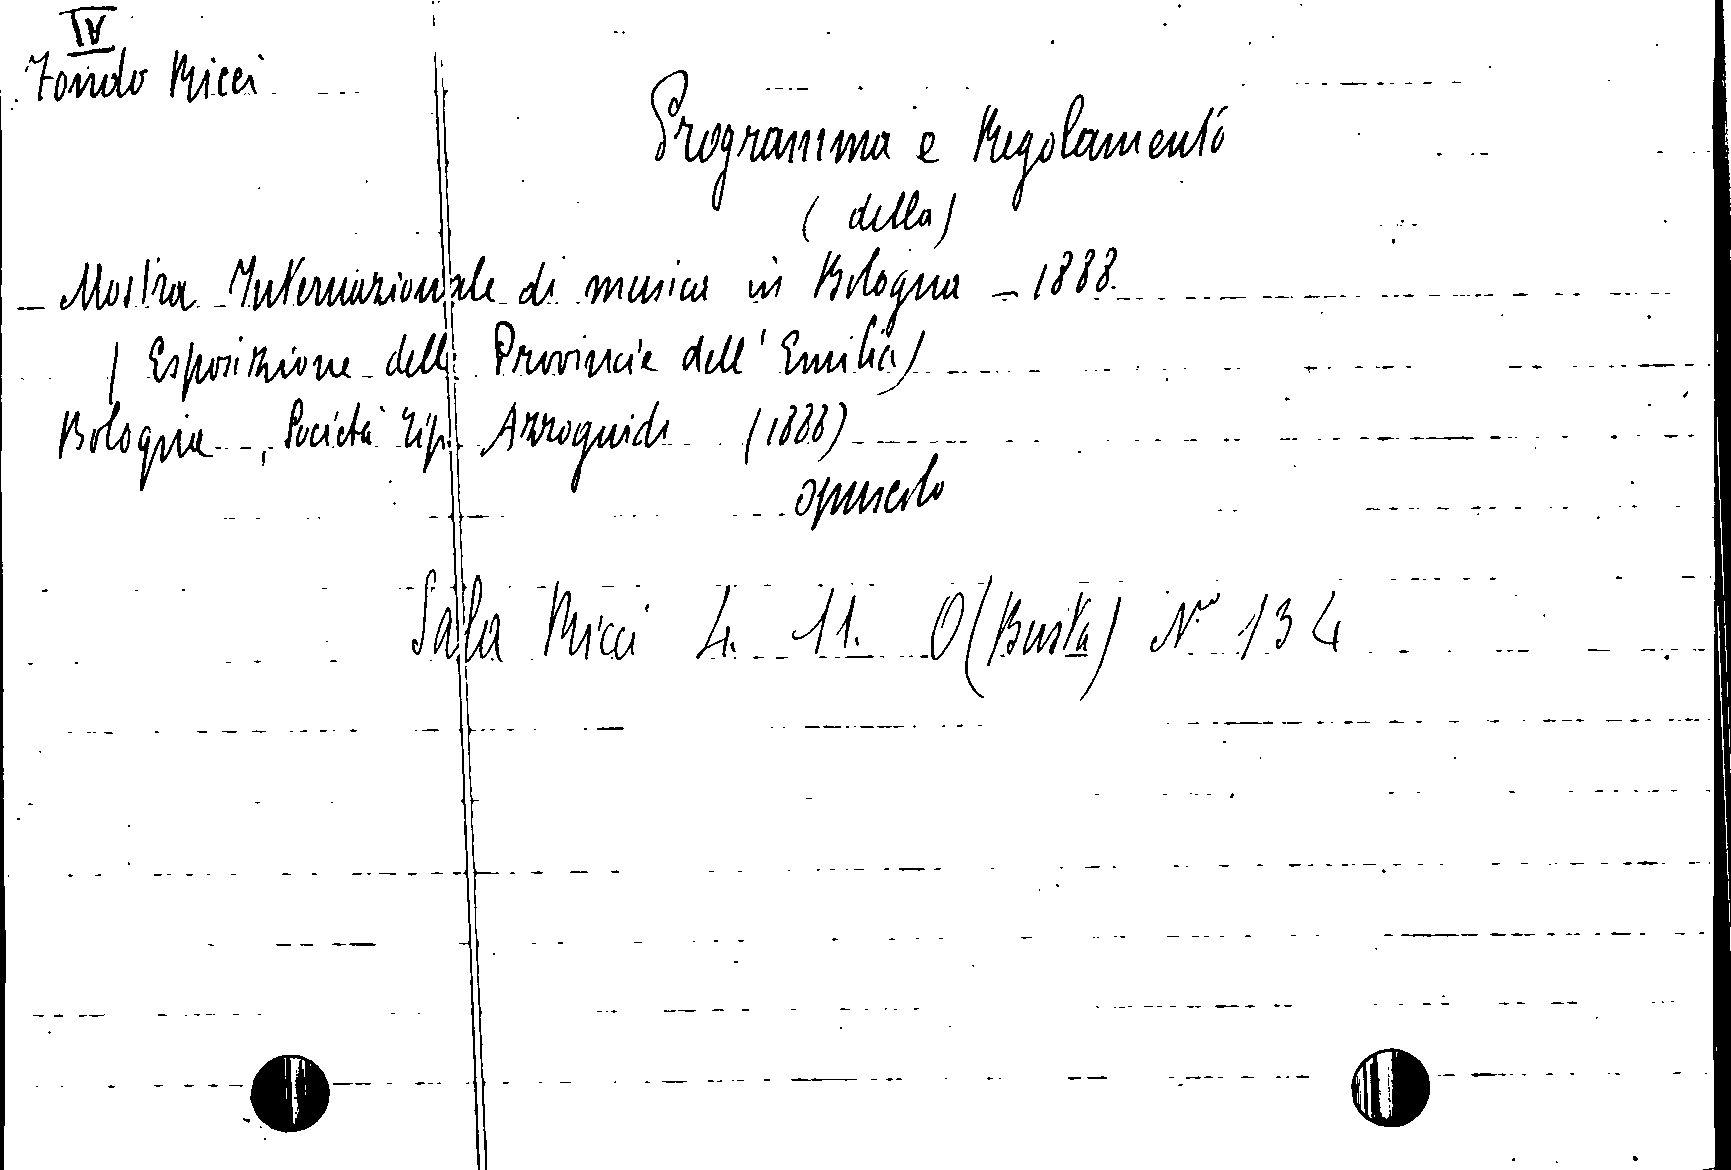 IV
Fondo Ricci
Programma e Regolamento
(della)
Mostra Internazionale di musica in Bologna - 1888.
(Esposizione delle Provincie dell'Emilia)
Bologna, Società Tip. Azzoguidi (1888)
opuscolo
Sala Ricci 4. 11. O(Busta) N° 134